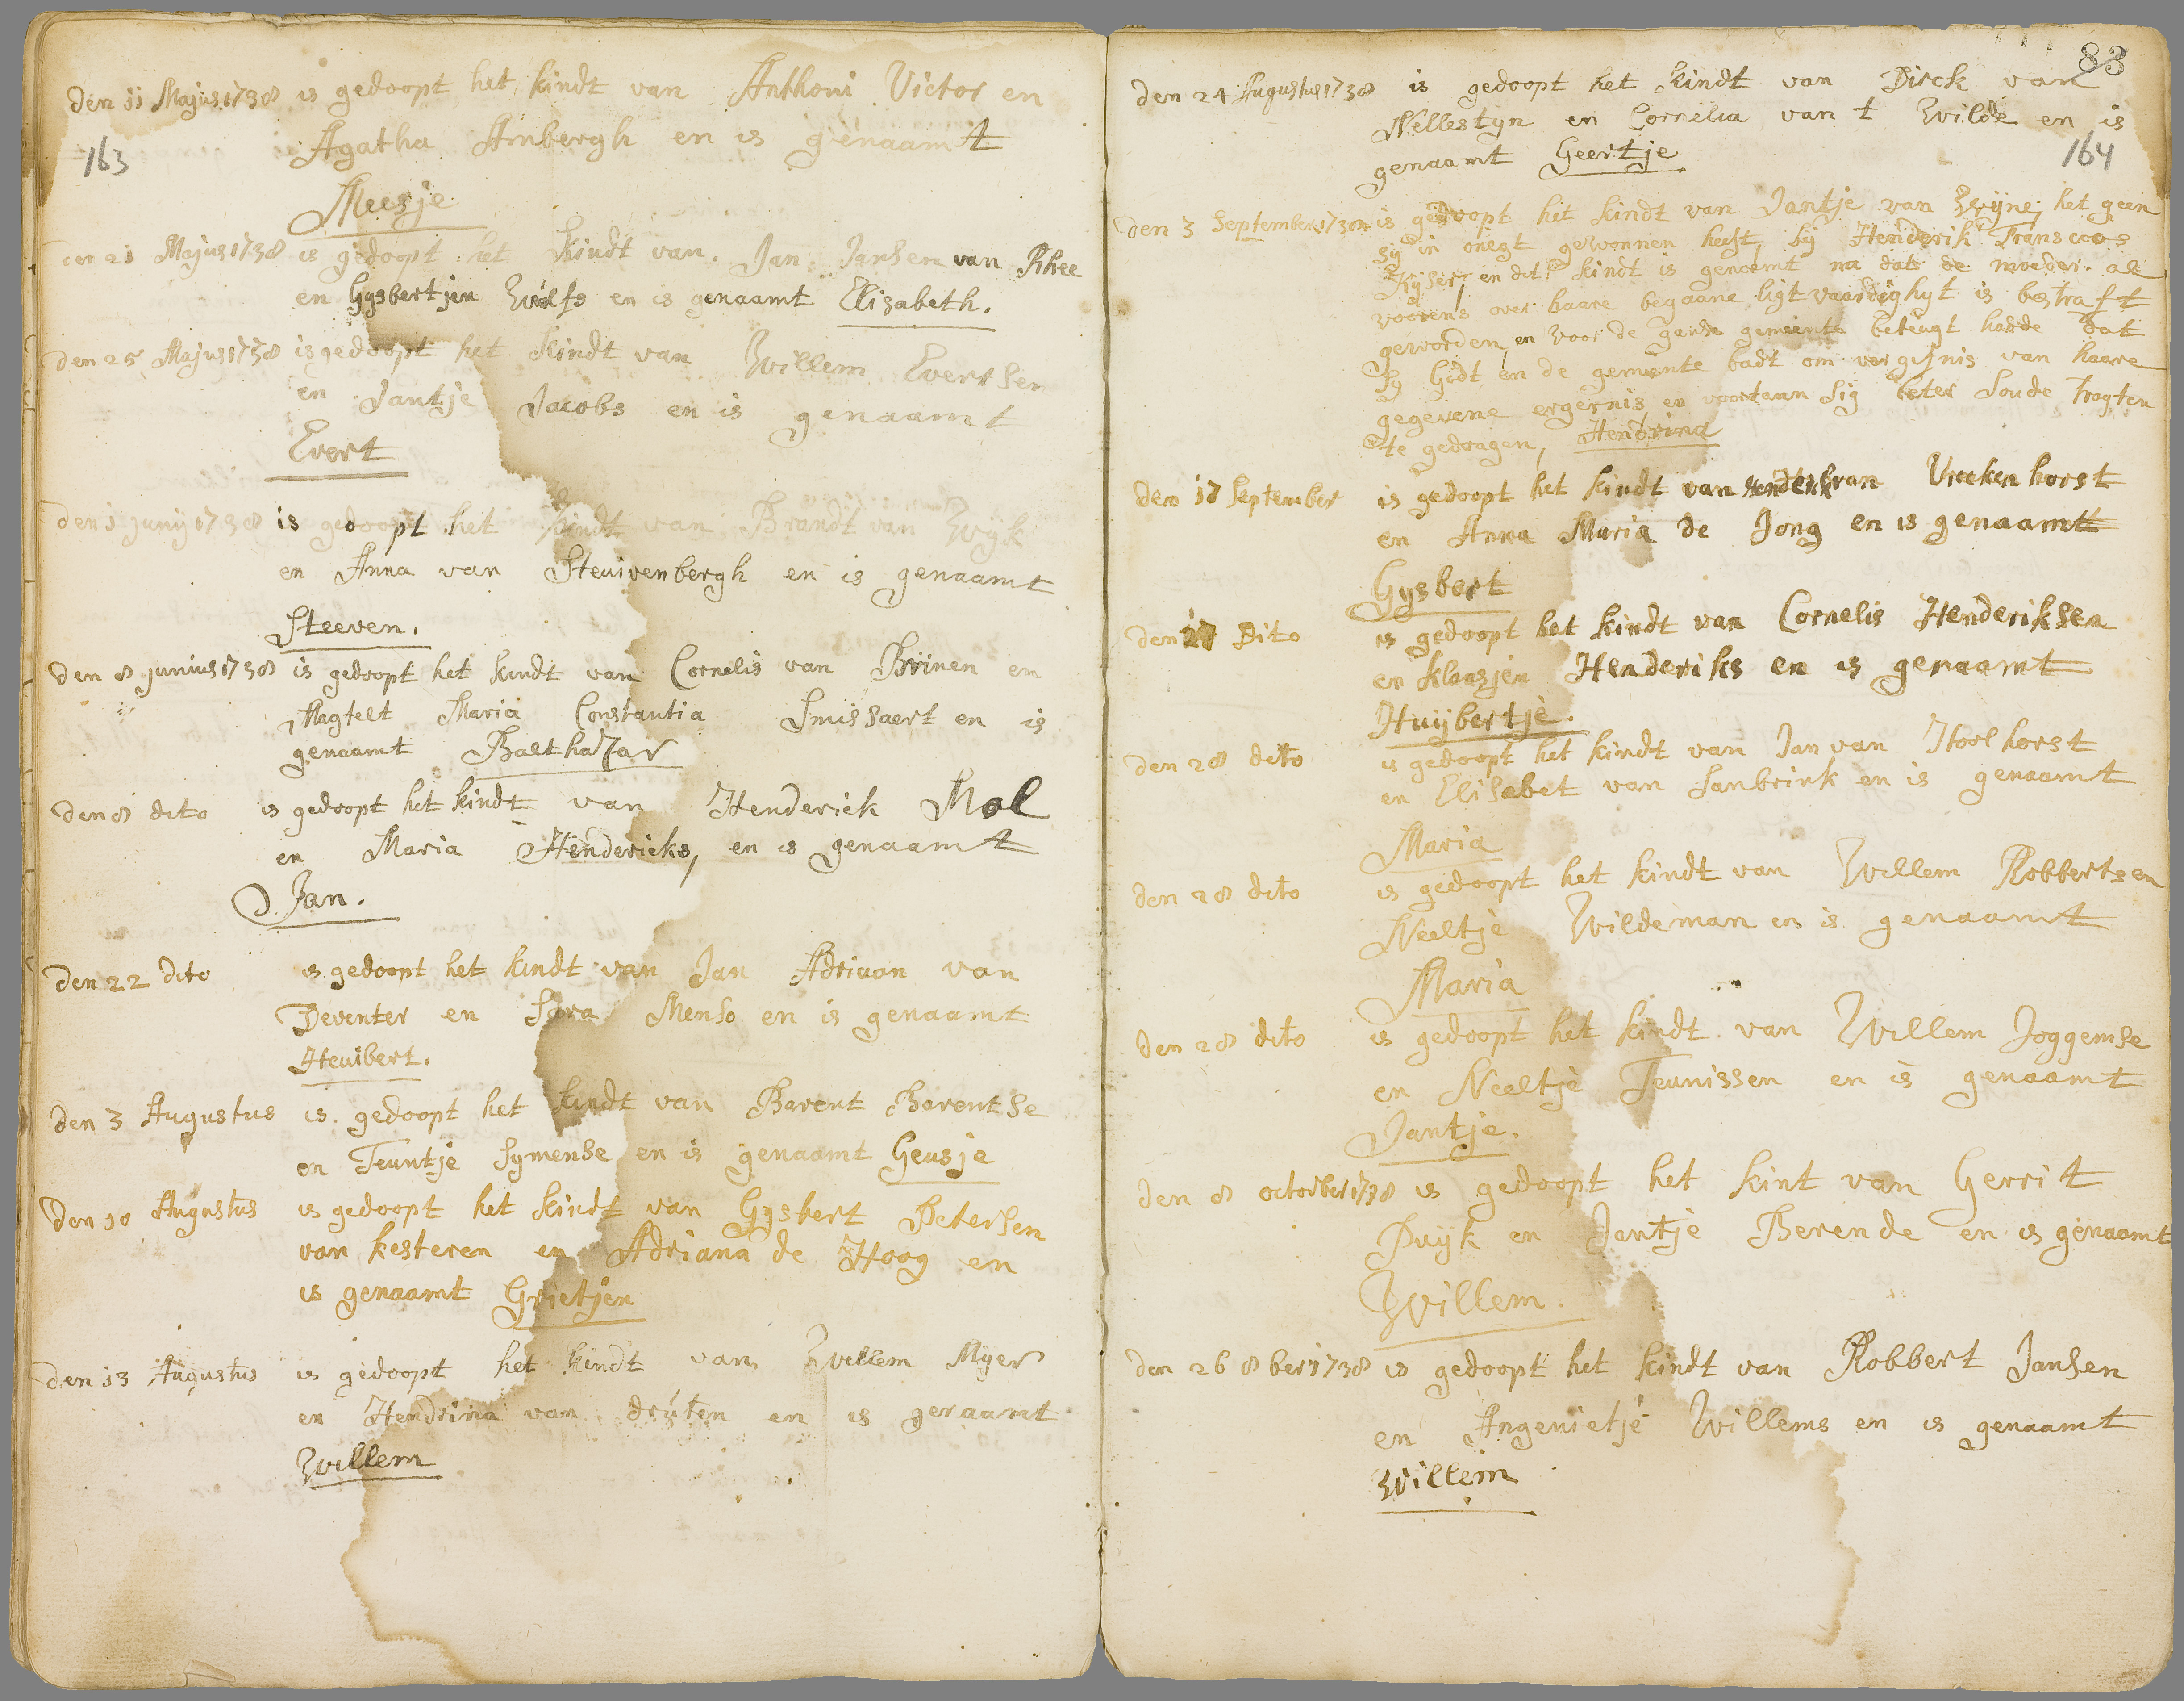 den 11 Majus 1738 is gedoopt het kindt van Anthoni Victor en
163
Agatha Anbergh en is genaamt
Meesje
21 Majus 1738 is gedoopt het kindt van Jan Jansen van Rhee
en Gysbertjen Wulfs en is genaamt Elisabeth.
den 25 Majus 1738 is gedoopt het kindt van Willem Evertsen
en Jantje Jacobs en is genaamt
Evert
den 1 juny 1738 is gedoopt het kindt van Brandt van Wyk
en Anna van Steuivenbergh en is genaamt
Steeven.
den 8 junius 1738 is gedoopt het kindt van Cornelis van Brinen en
Magtelt Maria Constantia Smissaert en is
genaamt Balthazar
den 8 dito is gedoopt het kindt van Henderick Mol
en Maria Hendericks, en is genaamt
Jan.
den 22 dito is gedoopt het kindt van Jan Adriaan van
Deventer en Sara Menso en is genaamt
Heuibert.
den 3 Augustus is gedoopt het kindt van Barent Barentse
en Teuntje Symense en is genaamt Geusje
den 10 Augustus is gedoopt het kindt van Gysbert Petersen
van kesteren en Adriana de Hoog en
is genaamt Grietjen
den 13 Augustus is gedoopt het kindt van Willem Myer
en Hendrina van druten en is genaamt
Willem
83
den 24 Augustus 1738 is gedoopt het kindt van Dirck van
Wellestyn en Cornelia van t Wilde en is
164
genaamt Geertje
den 3 September 1738 is gedoopt het kindt van Jantje van Zwyne, het geen
sy in onegt gewonnen heeft, by Henderik Fransoos
Kyser, en dit kindt is genoemt na dat de moeder als
voorens over haare begaane ligtvaardighyt is bestraft
geworden, en voor de gansse gemeente betuugt hadde dat
sy Godt en de gemeente badt om vergifnis van haare
gegevene ergernis en voortaan sig beter soude tragten
te gedraagen, Hendrina
den 17 September is gedoopt het kindt van Henderik van Vreekenhorst
en Anna Maria de Jong en is genaamt
Gysbert
den 27 Dito is gedoopt het kindt van Cornelis Henderiksen
en Klaasjen Henderiks en is genaamt
Huybertje.
den 28 dito is gedoopt het kindt van Jan van Hoolhorst
en Elisabet van Sanbrink en is genaamt
Maria
den 28 dito is gedoopt het kindt van Willem Robbertsen
Neeltje Wildeman en is genaamt
Maria
den 28 dito is gedoopt het kindt van Willem Joggemse
en Neeltje Teunissen en is genaamt
Jantje.
den 8 october 1738 is gedoopt het kint van Gerrit
Duyk en Jantje Berende en is genaamt
Willem.
den 26 8ber 1738 is gedoopt het kindt van Robbert Jansen
en Angenietje Willems en is genaamt
Willem